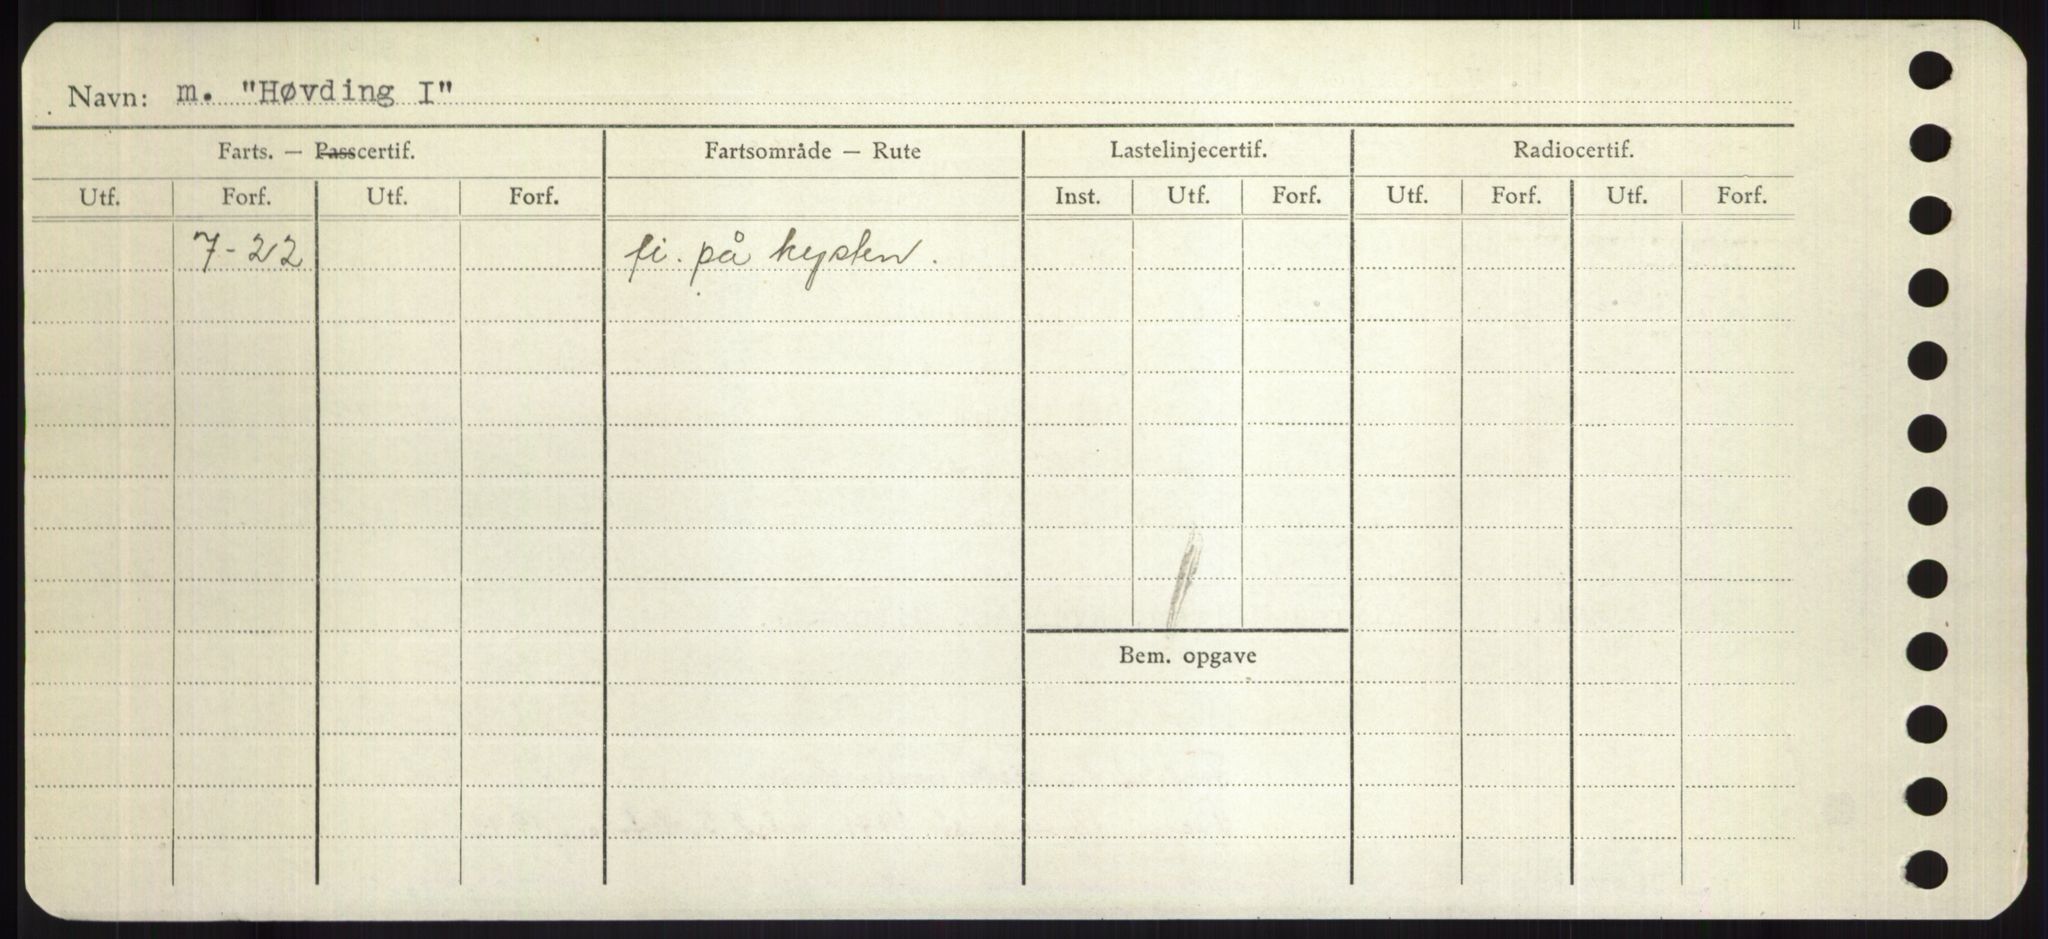 Navn: m. "Høvding I"
Farts. — Passcertif. Fartsområde — Rute Lastelinjecertif. Radiocertif.
Utf. Forf. Utf. Forf. Inst. Utf. Forf. Utf. Forf. Utf. Forf.
7-22 fi. på kysten.
Bem. opgave